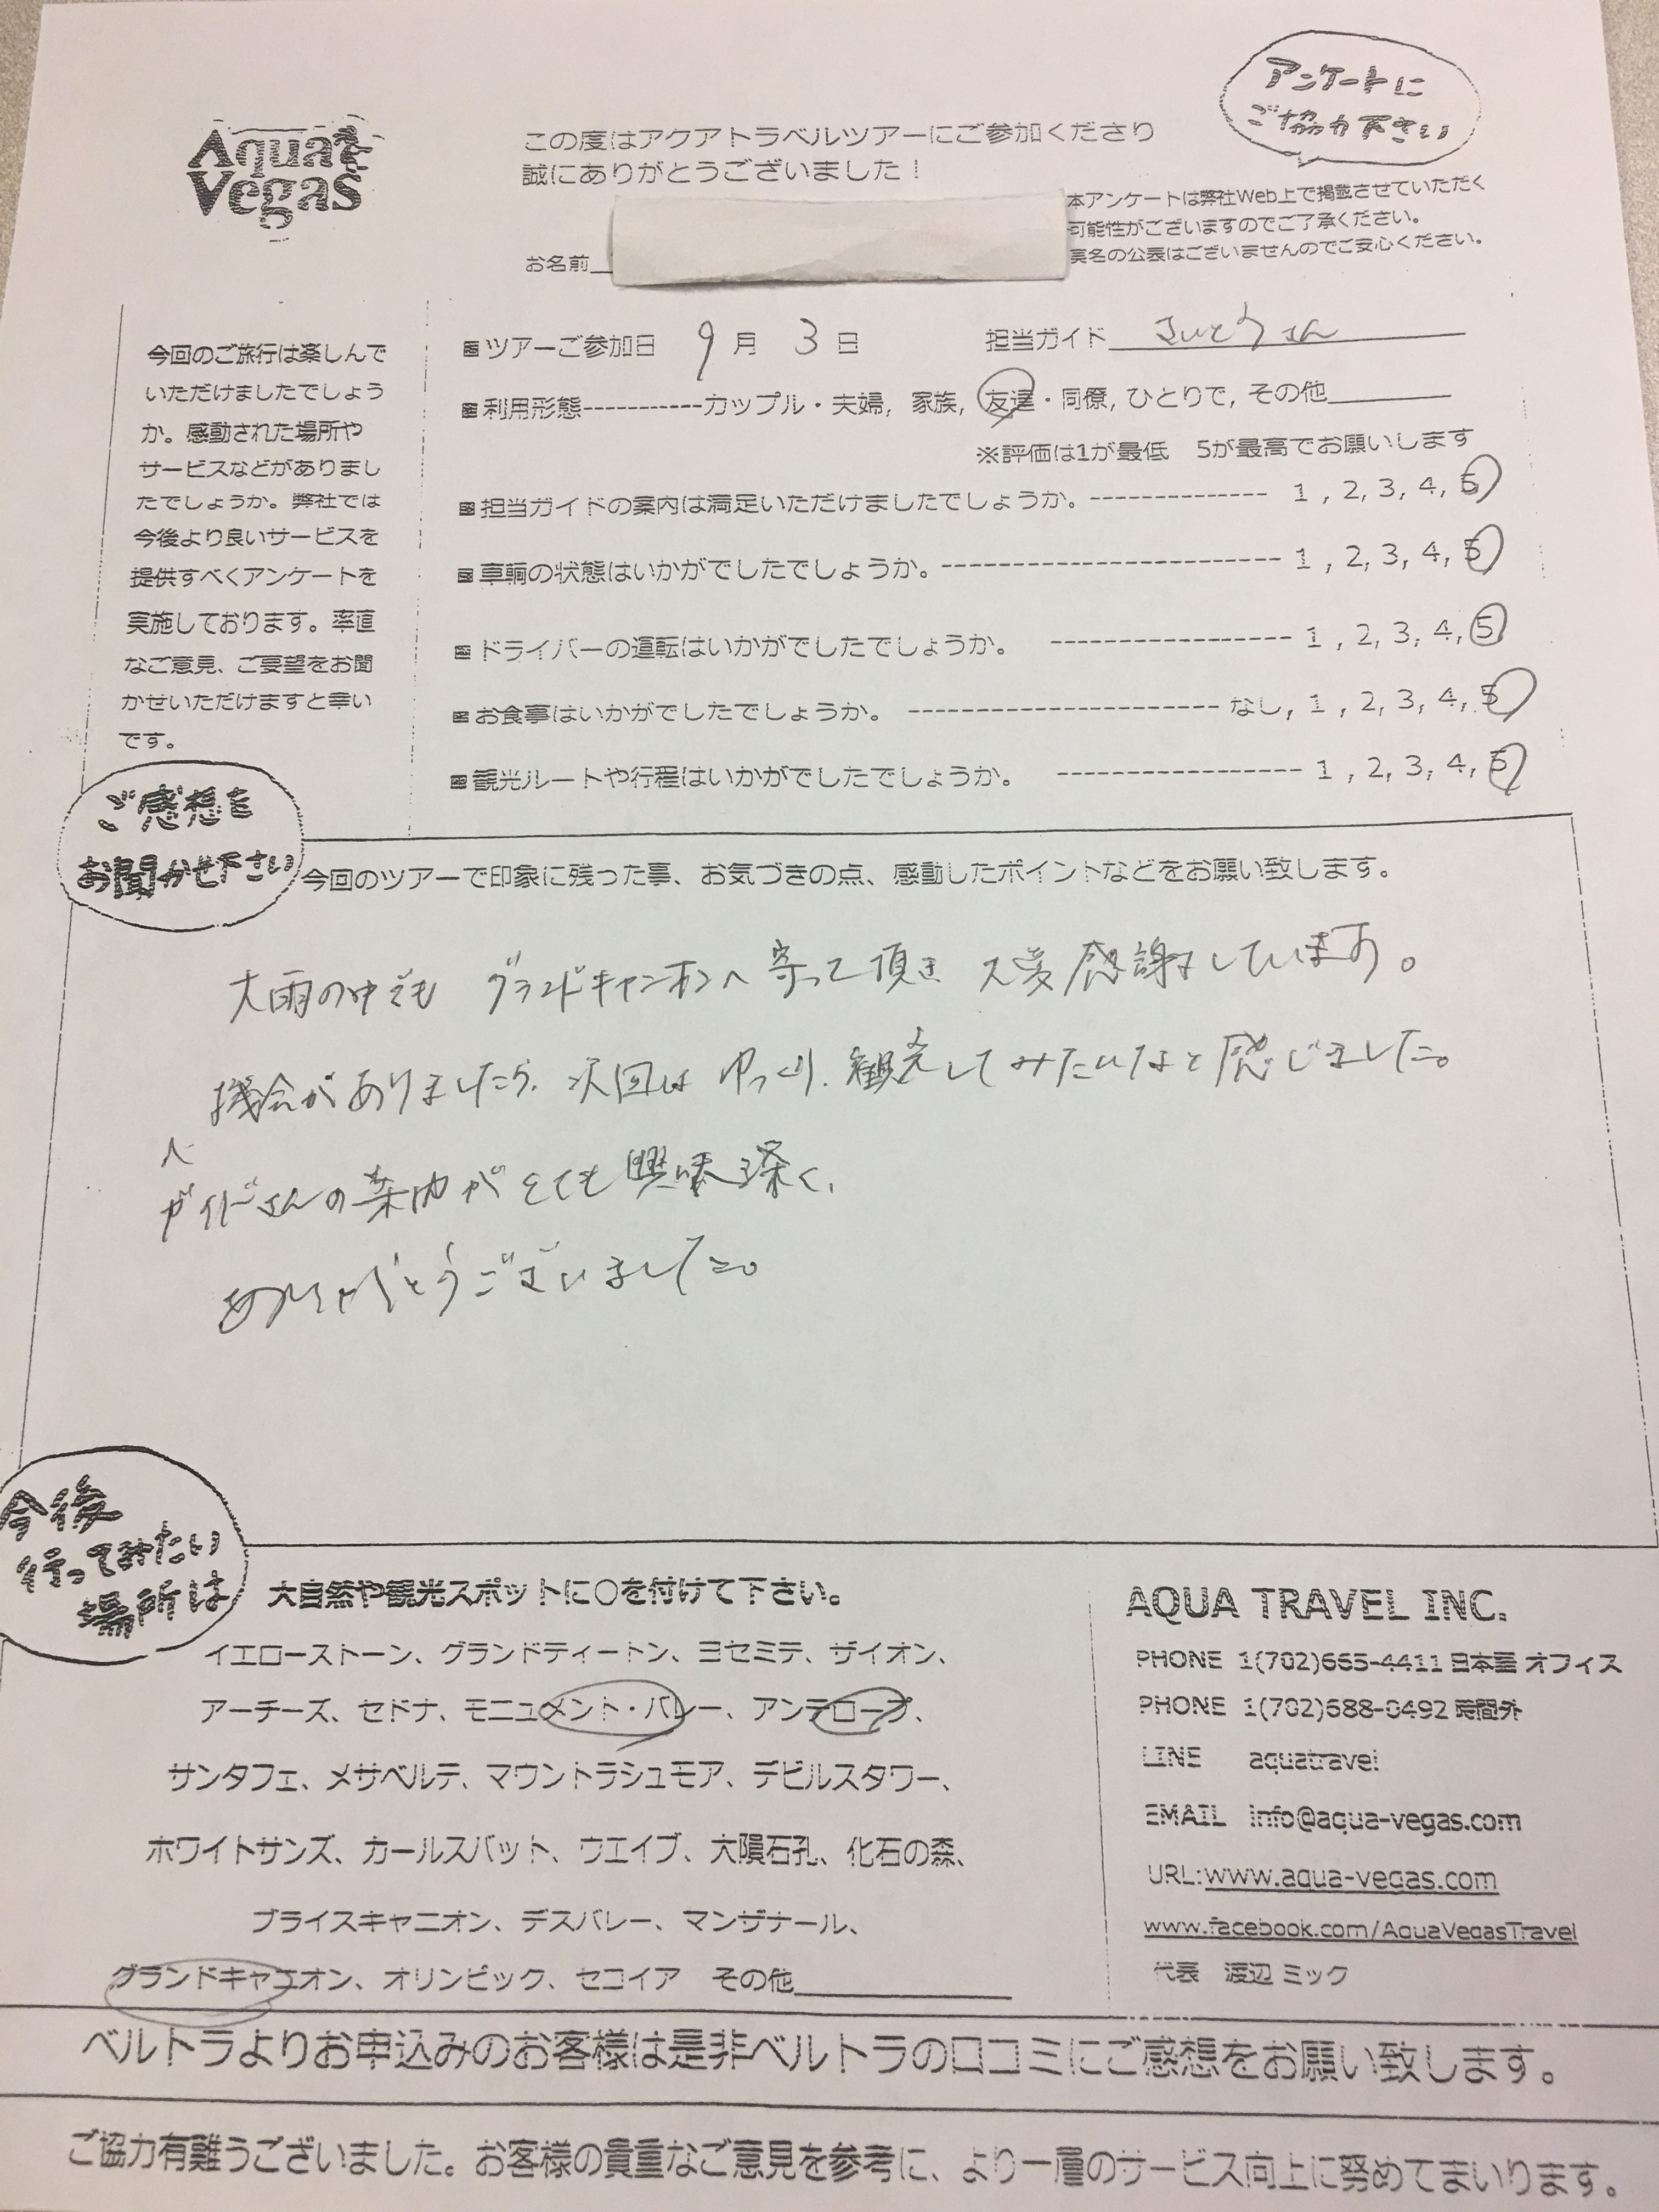 アンケートに
ご協力下さい
Aqua
Vegas
この度はアクアトラベルツアーにご参加くださり
誠にありがとうございました！
本アンケートは弊社Web上で掲載させていただく
可能性がございますのでご了承ください。
実名の公表はございませんのでご安心ください。
お名前
今回のご旅行は楽しんで
いただけましたでしょう
か。感動された場所や
サービスなどがありまし
たでしょうか。弊社では
今後より良いサービスを
提供すべくアンケートを
実施しております。率直
なご意見、ご要望をお聞
かせいただけますと幸い
です。
■ツアーご参加日 9月 3日 担当ガイド さいとうさん
■利用形態-----------カップル・夫婦, 家族, 友達・同僚, ひとりで, その他
※評価は1が最低 5が最高でお願いします
■担当ガイドの案内は満足いただけましたでしょうか。-------------- 1 , 2, 3, 4, 5
■車輌の状態はいかがでしたでしょうか。--------------------------- 1 , 2, 3, 4, 5
■ドライバーの運転はいかがでしたでしょうか。 ------------------- 1 , 2, 3, 4, 5
■お食事はいかがでしたでしょうか。 ------------------------なし, 1 , 2, 3, 4, 5
■観光ルートや行程はいかがでしたでしょうか。 ------------------- 1 , 2, 3, 4, 5
ご感想を
お聞かせ下さい
今回のツアーで印象に残った事、お気づきの点、感動したポイントなどをお願い致します。
大雨の中でも グランドキャンオンへ寄って頂き 大変感謝をしています。
機会がありましたら、次回は ゆっくり、観光してみたいなと感じました。
ガイドさんの案内がとても興味深く、
ありがとうございました。
今後
行ってみたい
場所は
大自然や観光スポットに○を付けて下さい。
イエローストーン、グランドティートン、ヨセミテ、ザイオン、
アーチーズ、セドナ、モニュメント・バレー、アンテロープ、
サンタフェ、メサベルテ、マウントラシュモア、デビルスタワー、
ホワイトサンズ、カールスバット、ウエイブ、大隕石孔、化石の森、
ブライスキャニオン、デスバレー、マンザナール、
グランドキャニオン、オリンピック、セコイア その他
AQUA TRAVEL INC.
PHONE 1(702)665-4411 日本語 オフィス
PHONE 1(702)688-0492 時間外
LINE aquatravel
EMAIL info@aqua-vegas.com
URL:www.aqua-vegas.com
www.facebook.com/AquaVegasTravel
代表 渡辺 ミック
ベルトラよりお申込みのお客様は是非ベルトラの口コミにご感想をお願い致します。
ご協力有難うございました。お客様の貴重なご意見を参考に、より一層のサービス向上に努めてまいります。